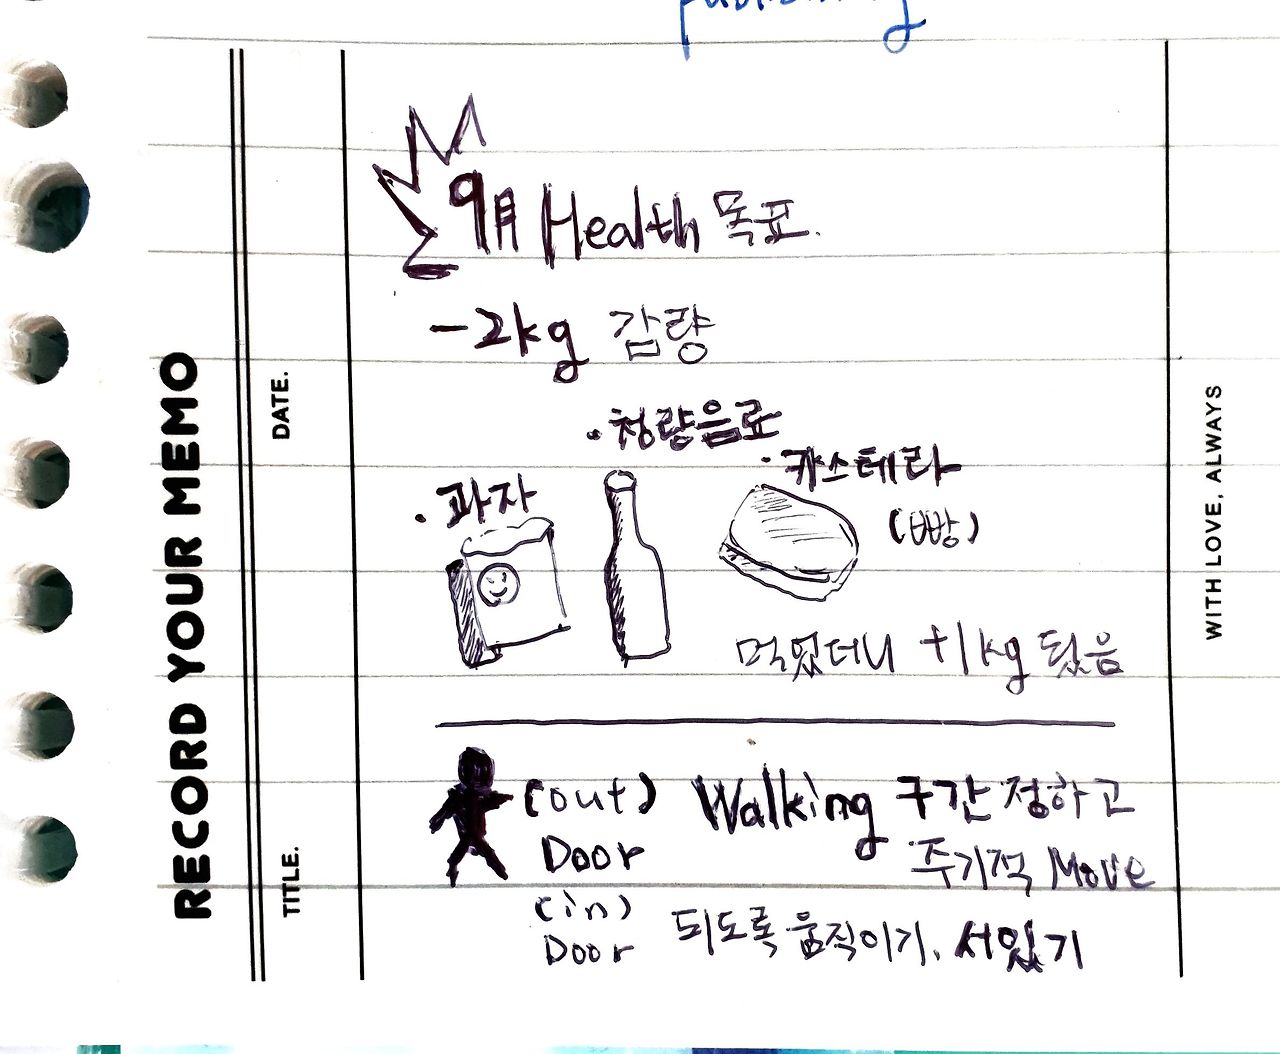 publishing
9月 Health 목표.
-2kg 감량
· 청량음료
· 카스테라
(빵)
· 과자
먹었더니 +1kg 됬음
(out) Door
Walking 구간 정하고
주기적 Move
(in) Door
되도록 움직이기. 서있기
RECORD YOUR MEMO
DATE.
TITLE.
WITH LOVE, ALWAYS